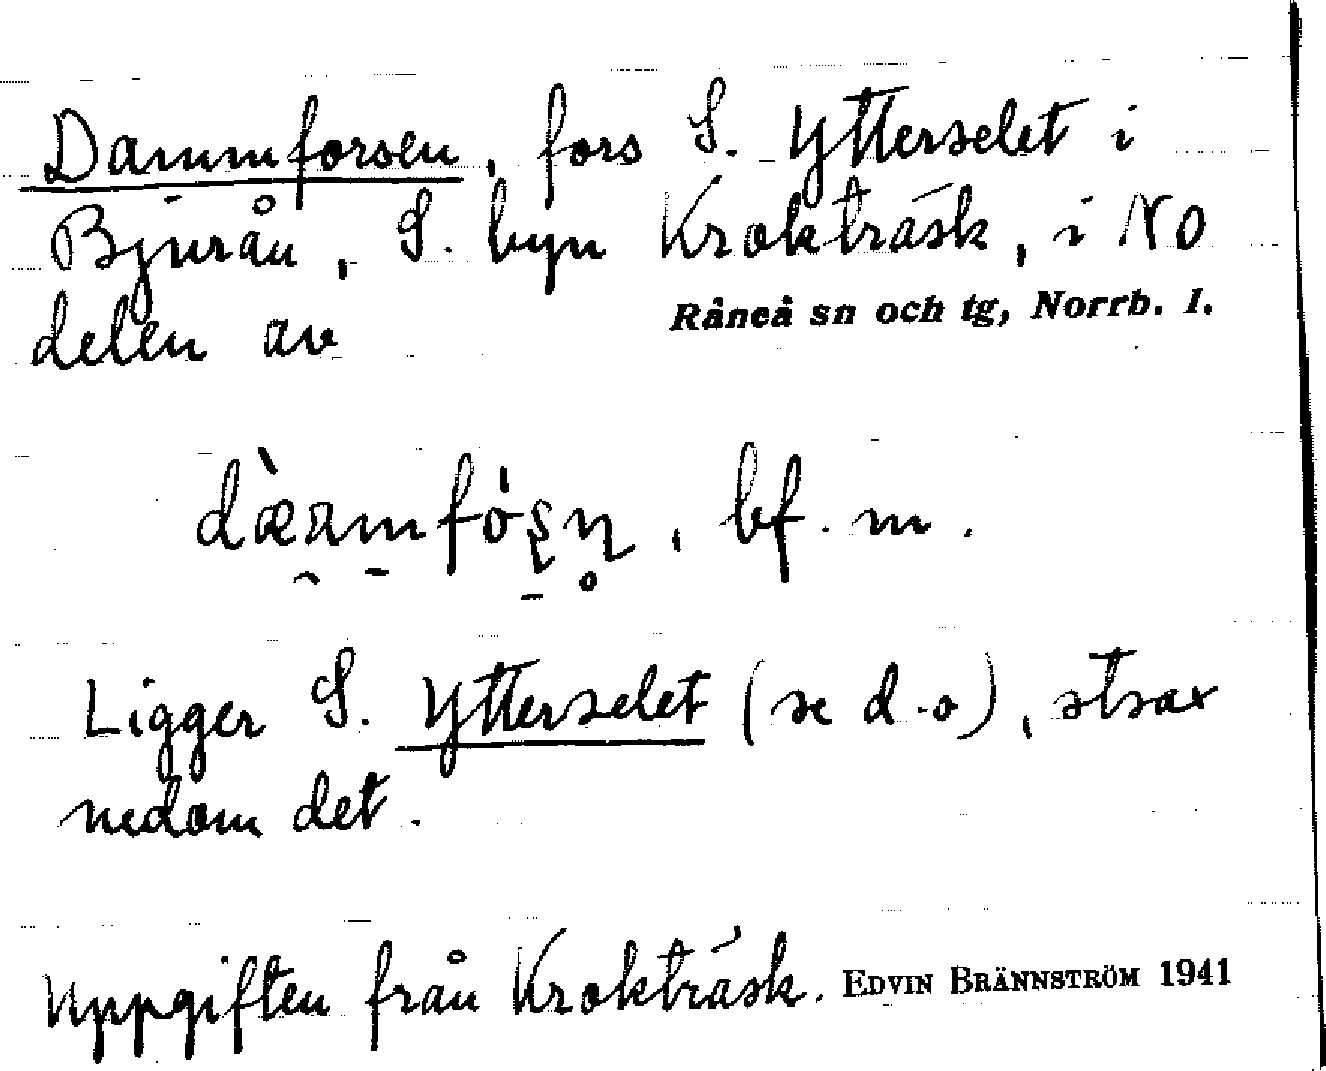 Dammforsen, fors S. Ytterselet i
Bjurån, S. byn Kroktråsk, i NO
delen av Råneå sn och tg, Norrb. l.
bf. m.
Ligger S. Ytterselet (se d.o), strax
nedom det.
Uppgiften från Kroktråsk. EDVIN BRÄNNSTRÖM 1941